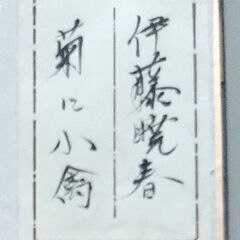 伊藤暁春
菊に小禽